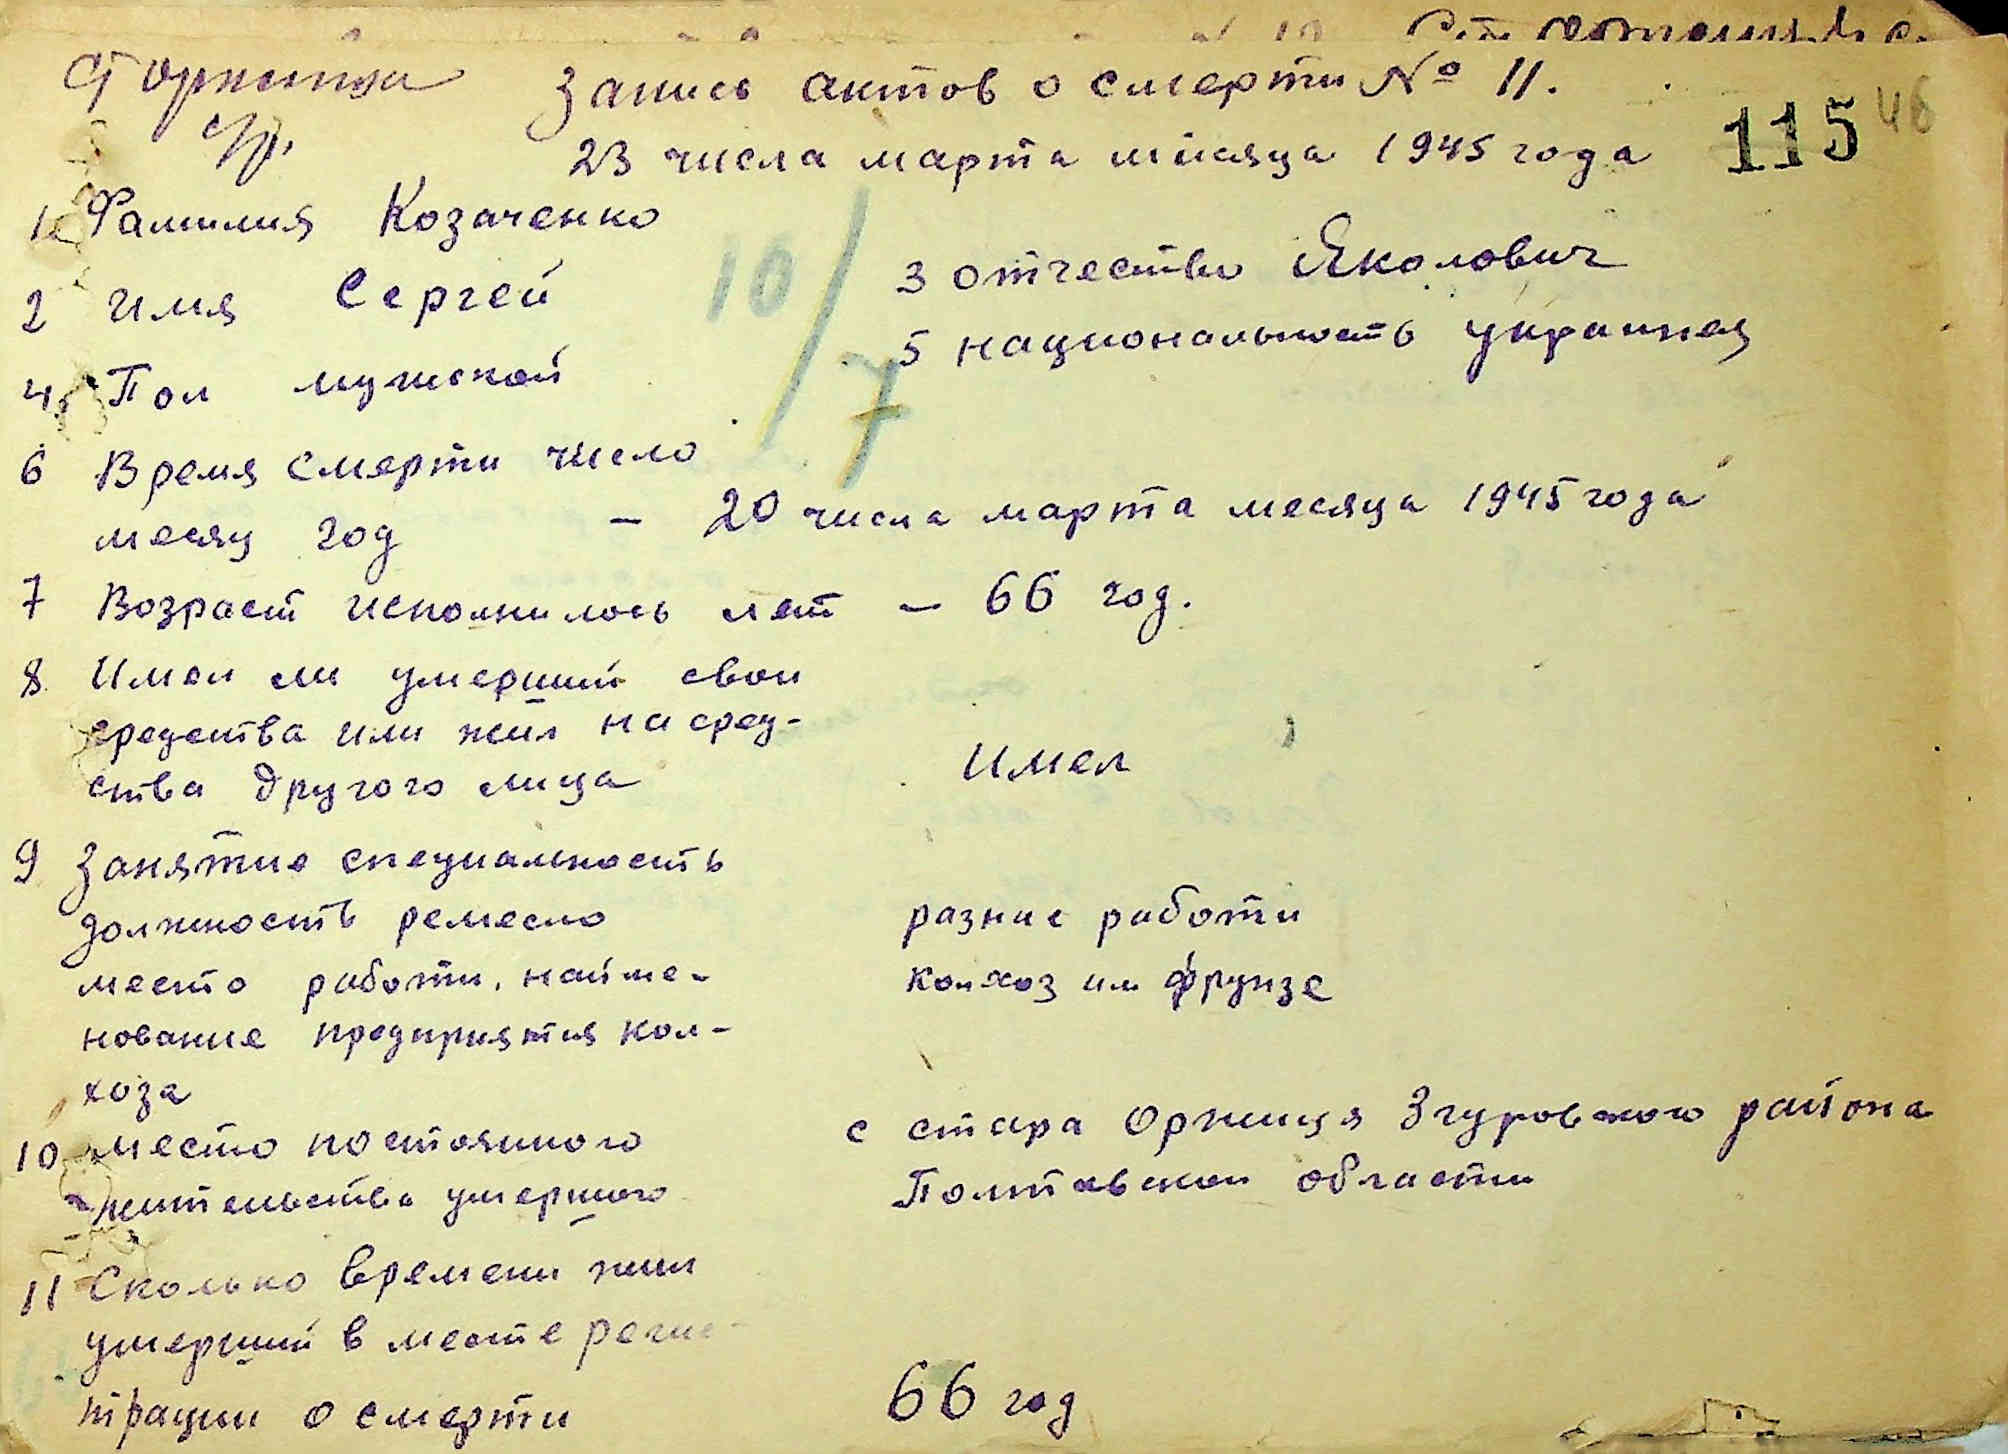 Ст Оржиця Запись актов о смерти № 11.
23 числа марта місяця 1945 года 115 46
1. Фамилия Козаченко
2 Имя Сергей
3 отчество Яколович
4. Пол мужской
5 национальность украинец
10/7
6 Время смерти число
месяц год – 20 числа марта месяца 1945 года
7 Возраст исполнилось лет – 66 год.
8. Имел ли умерший свои
средства или жил на сред-
ства другого лица Имел
9 Занятие специальность
должность ремесло разние работи
место работи, найме- колхоз им Фрунзе
нование предприятия кол-
хоза
10 место постояного с стара Оржиця Згуровского района
жительства умершого Полтавской области
11 Сколько времени жил
умерший в месте регис-
трации о смерти 66 год